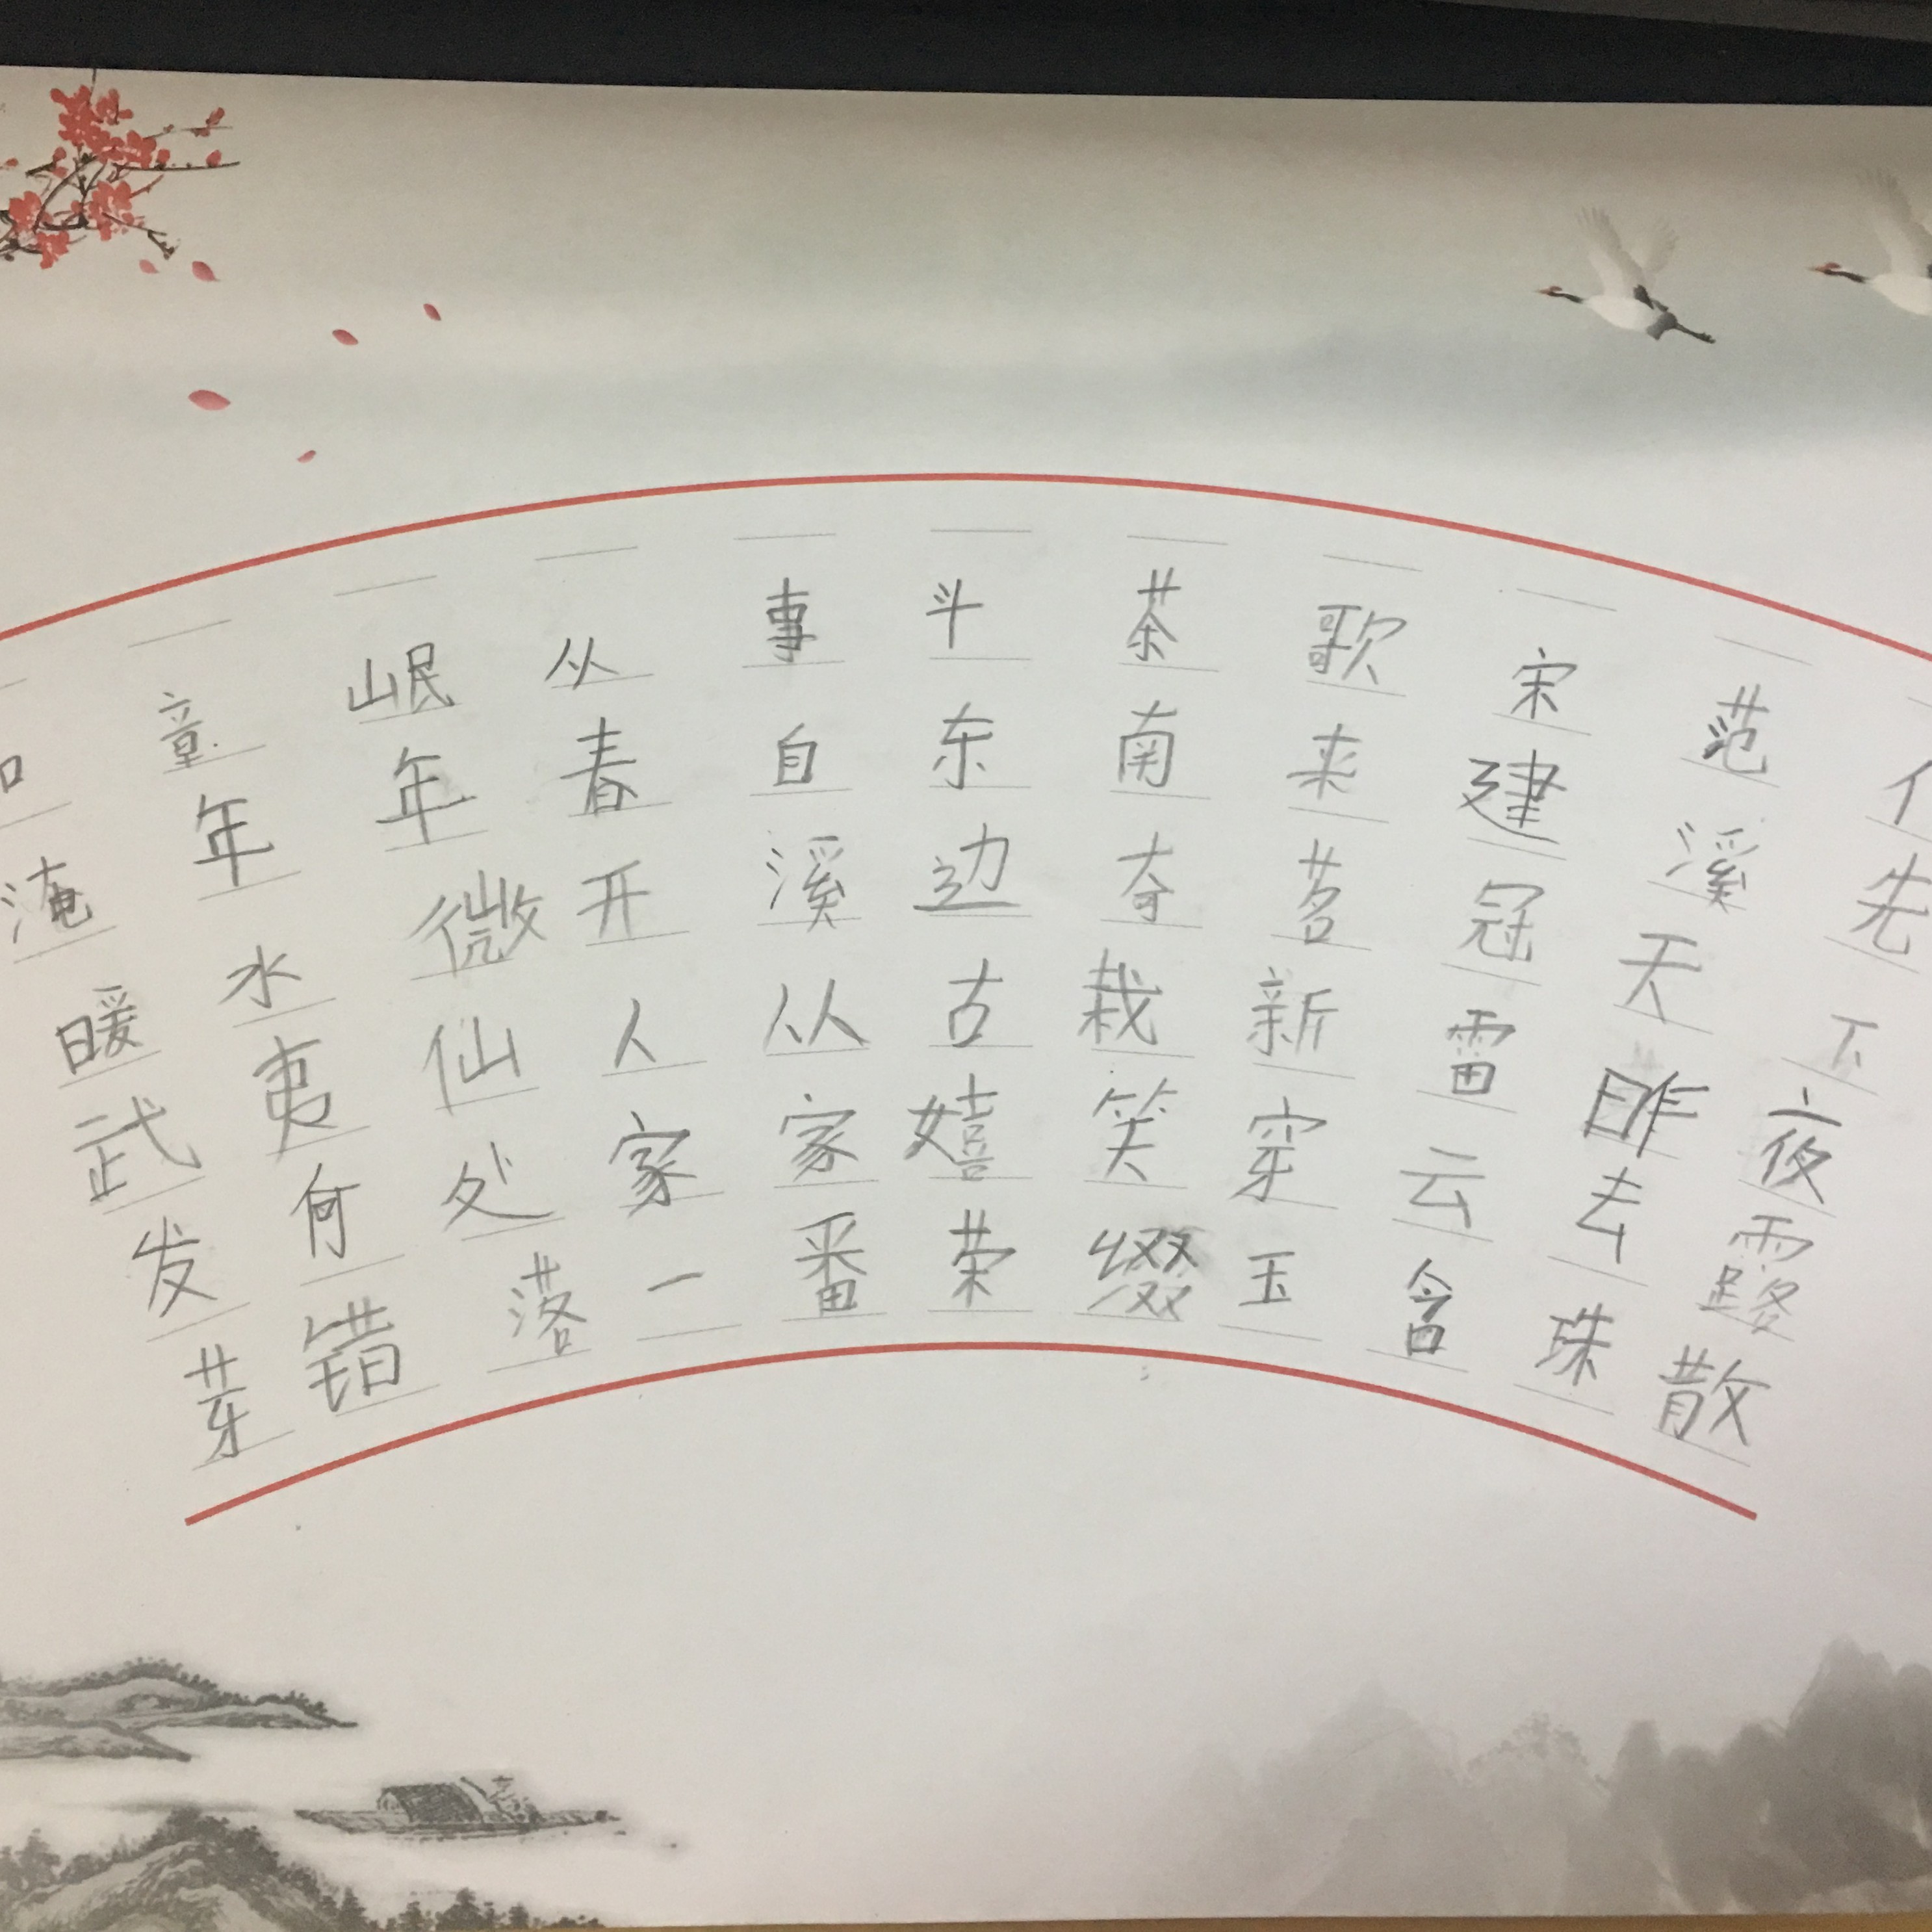 章岷从事斗茶歌宋范
淹年年春自东南来建溪先
暖水微开溪边奇茗冠天下
武夷仙人从古栽新雷昨夜
发何处家家嬉笑穿云去露
芽错落一番荣缀玉含珠散